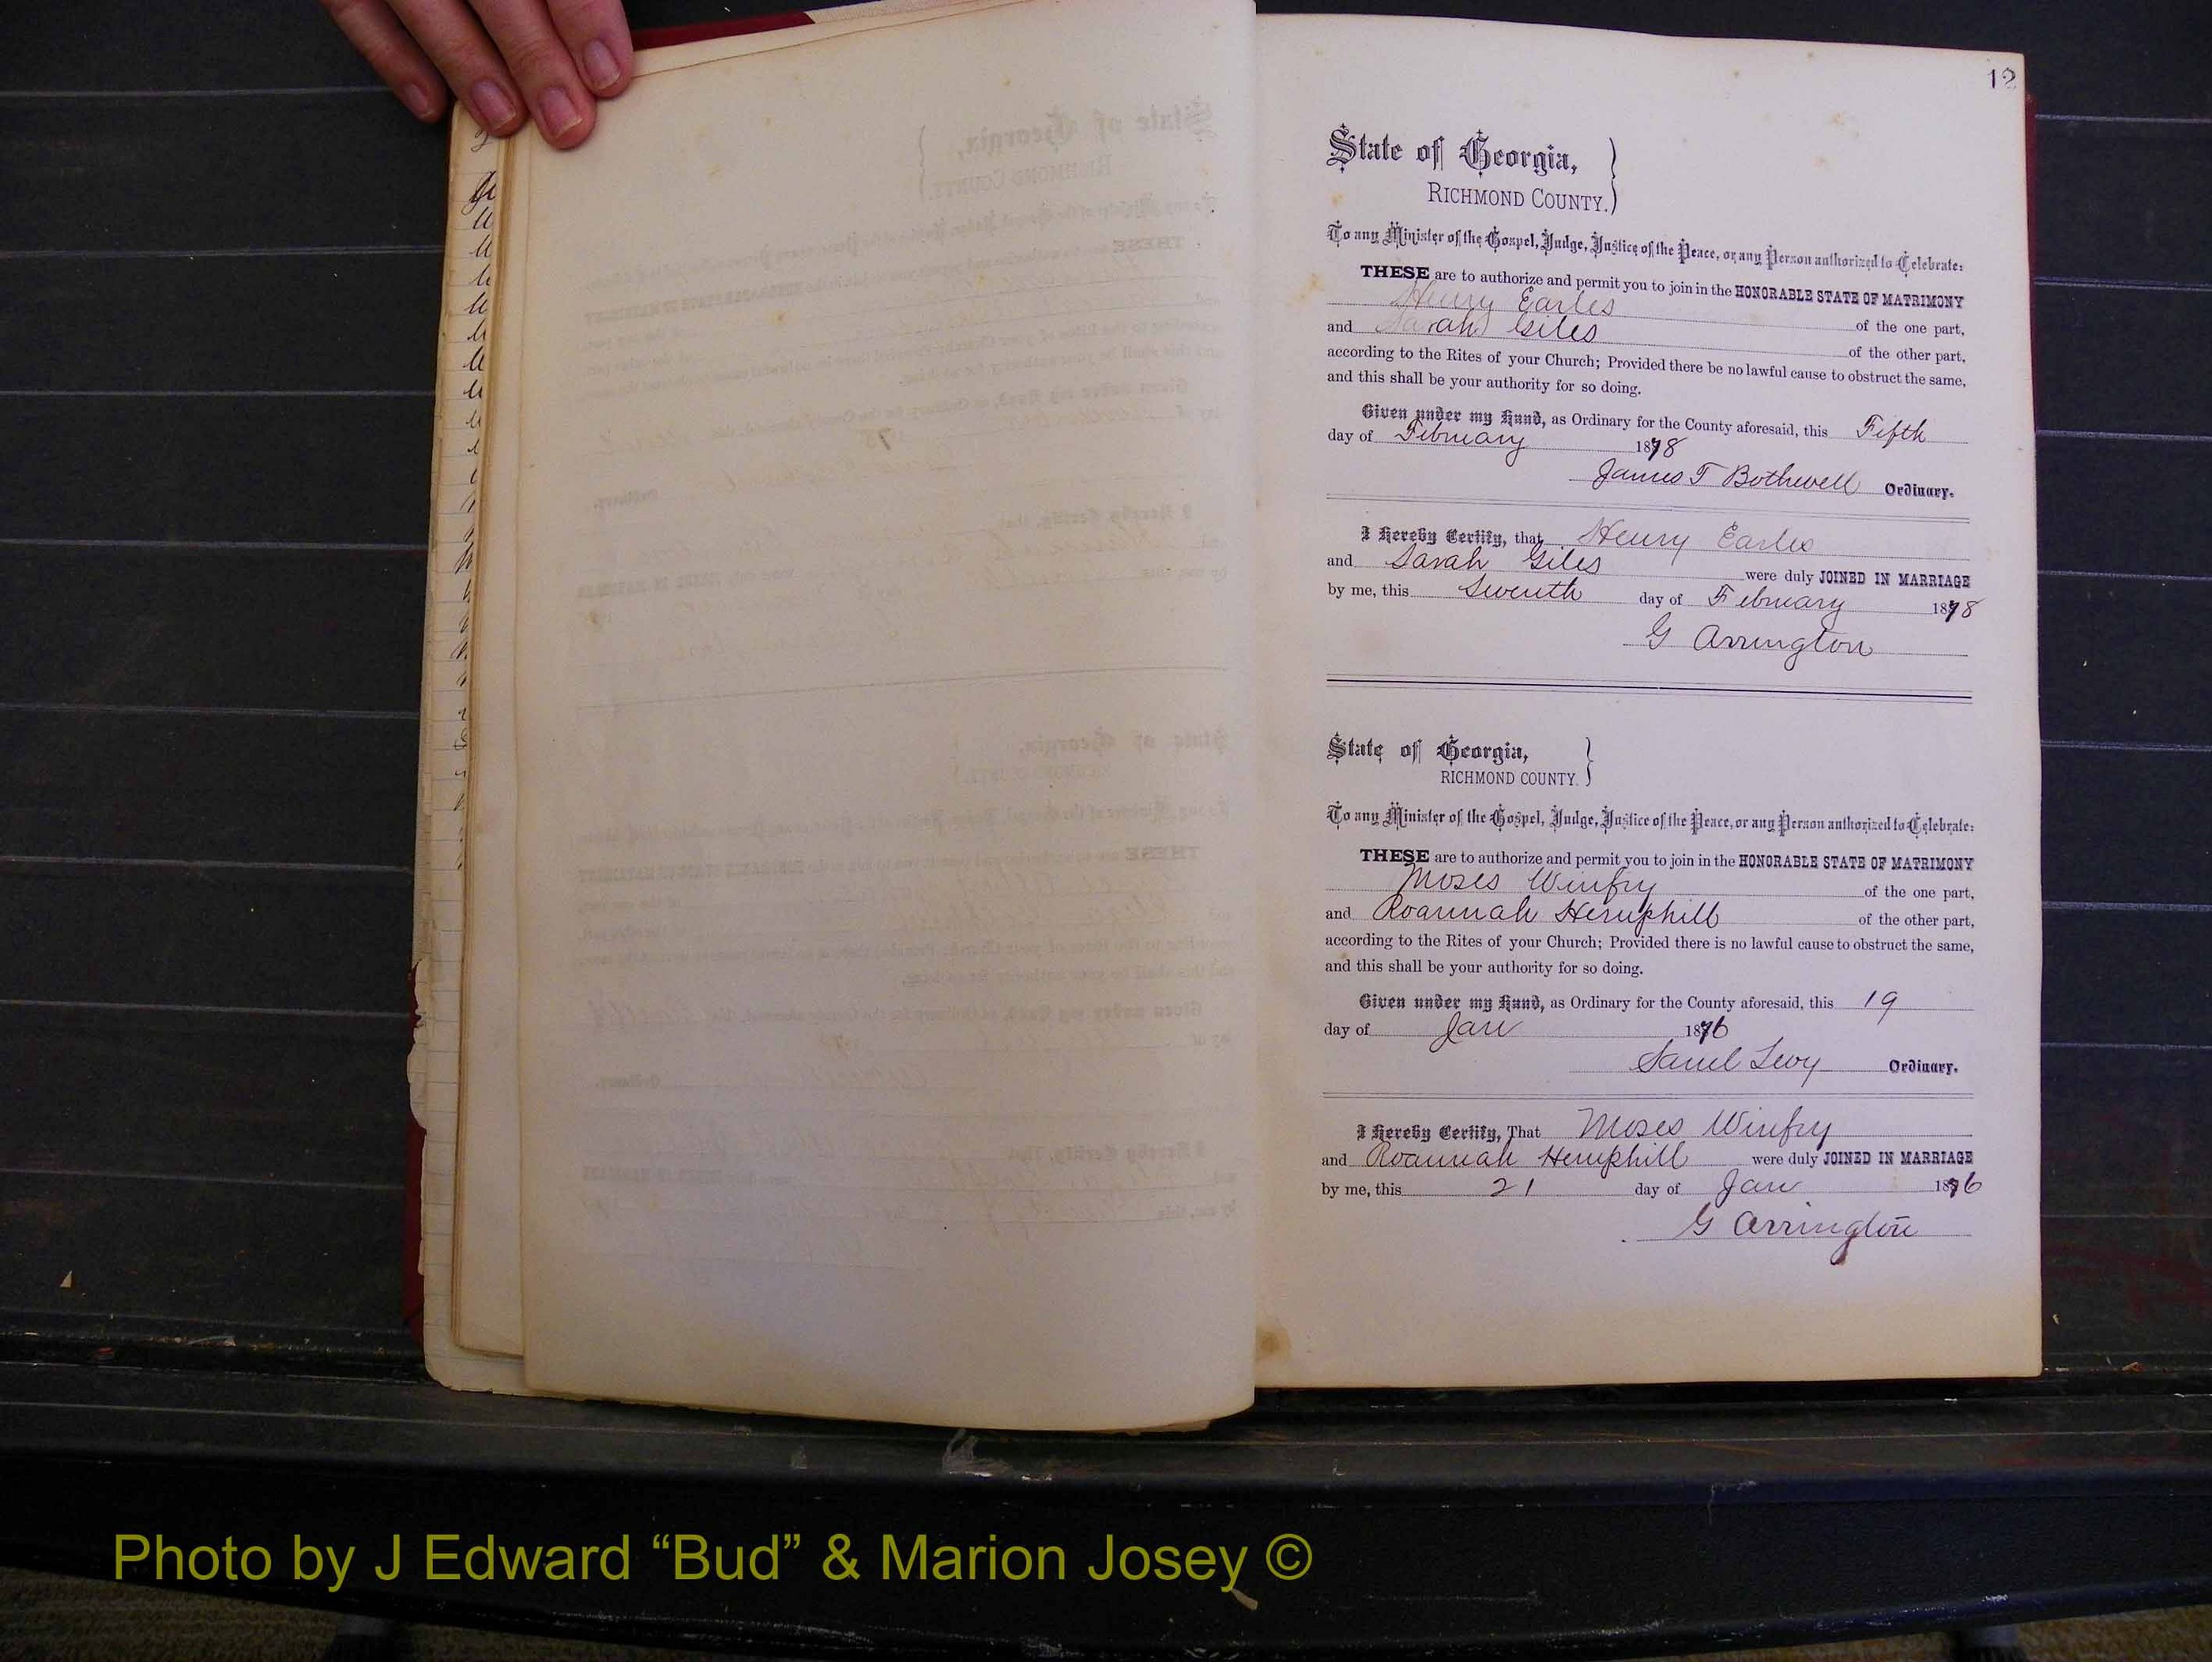 12
State of Georgia,
RICHMOND COUNTY.
To any Minister of the Gospel, Judge, Justice of the Peace, or any Person authorized to Celebrate:
THESE are to authorize and permit you to join in the HONORABLE STATE OF MATRIMONY
Henry Earles of the one part,
and Sarah Giles of the other part,
according to the Rites of your Church; Provided there be no lawful cause to obstruct the same,
and this shall be your authority for so doing.
Given under my Hand, as Ordinary for the County aforesaid, this Fifth
day of February 1878
James T Bothwell Ordinary.
I Hereby Certify, that Henry Earles
and Sarah Giles were duly JOINED IN MARRIAGE
by me, this Seventh day of February 1878
G Arrington
State of Georgia,
RICHMOND COUNTY.
To any Minister of the Gospel, Judge, Justice of the Peace, or any Person authorized to Celebrate:
THESE are to authorize and permit you to join in the HONORABLE STATE OF MATRIMONY
Moses Winfry of the one part,
and Roannah Hemphill of the other part,
according to the Rites of your Church; Provided there is no lawful cause to obstruct the same,
and this shall be your authority for so doing.
Given under my Hand, as Ordinary for the County aforesaid, this 19
day of Jan 1876
Saml Levy Ordinary.
I Hereby Certify, That Moses Winfry
and Roannah Hemphill were duly JOINED IN MARRIAGE
by me, this 21 day of Jan 1876
G Arrington
Photo by J Edward “Bud” & Marion Josey ©